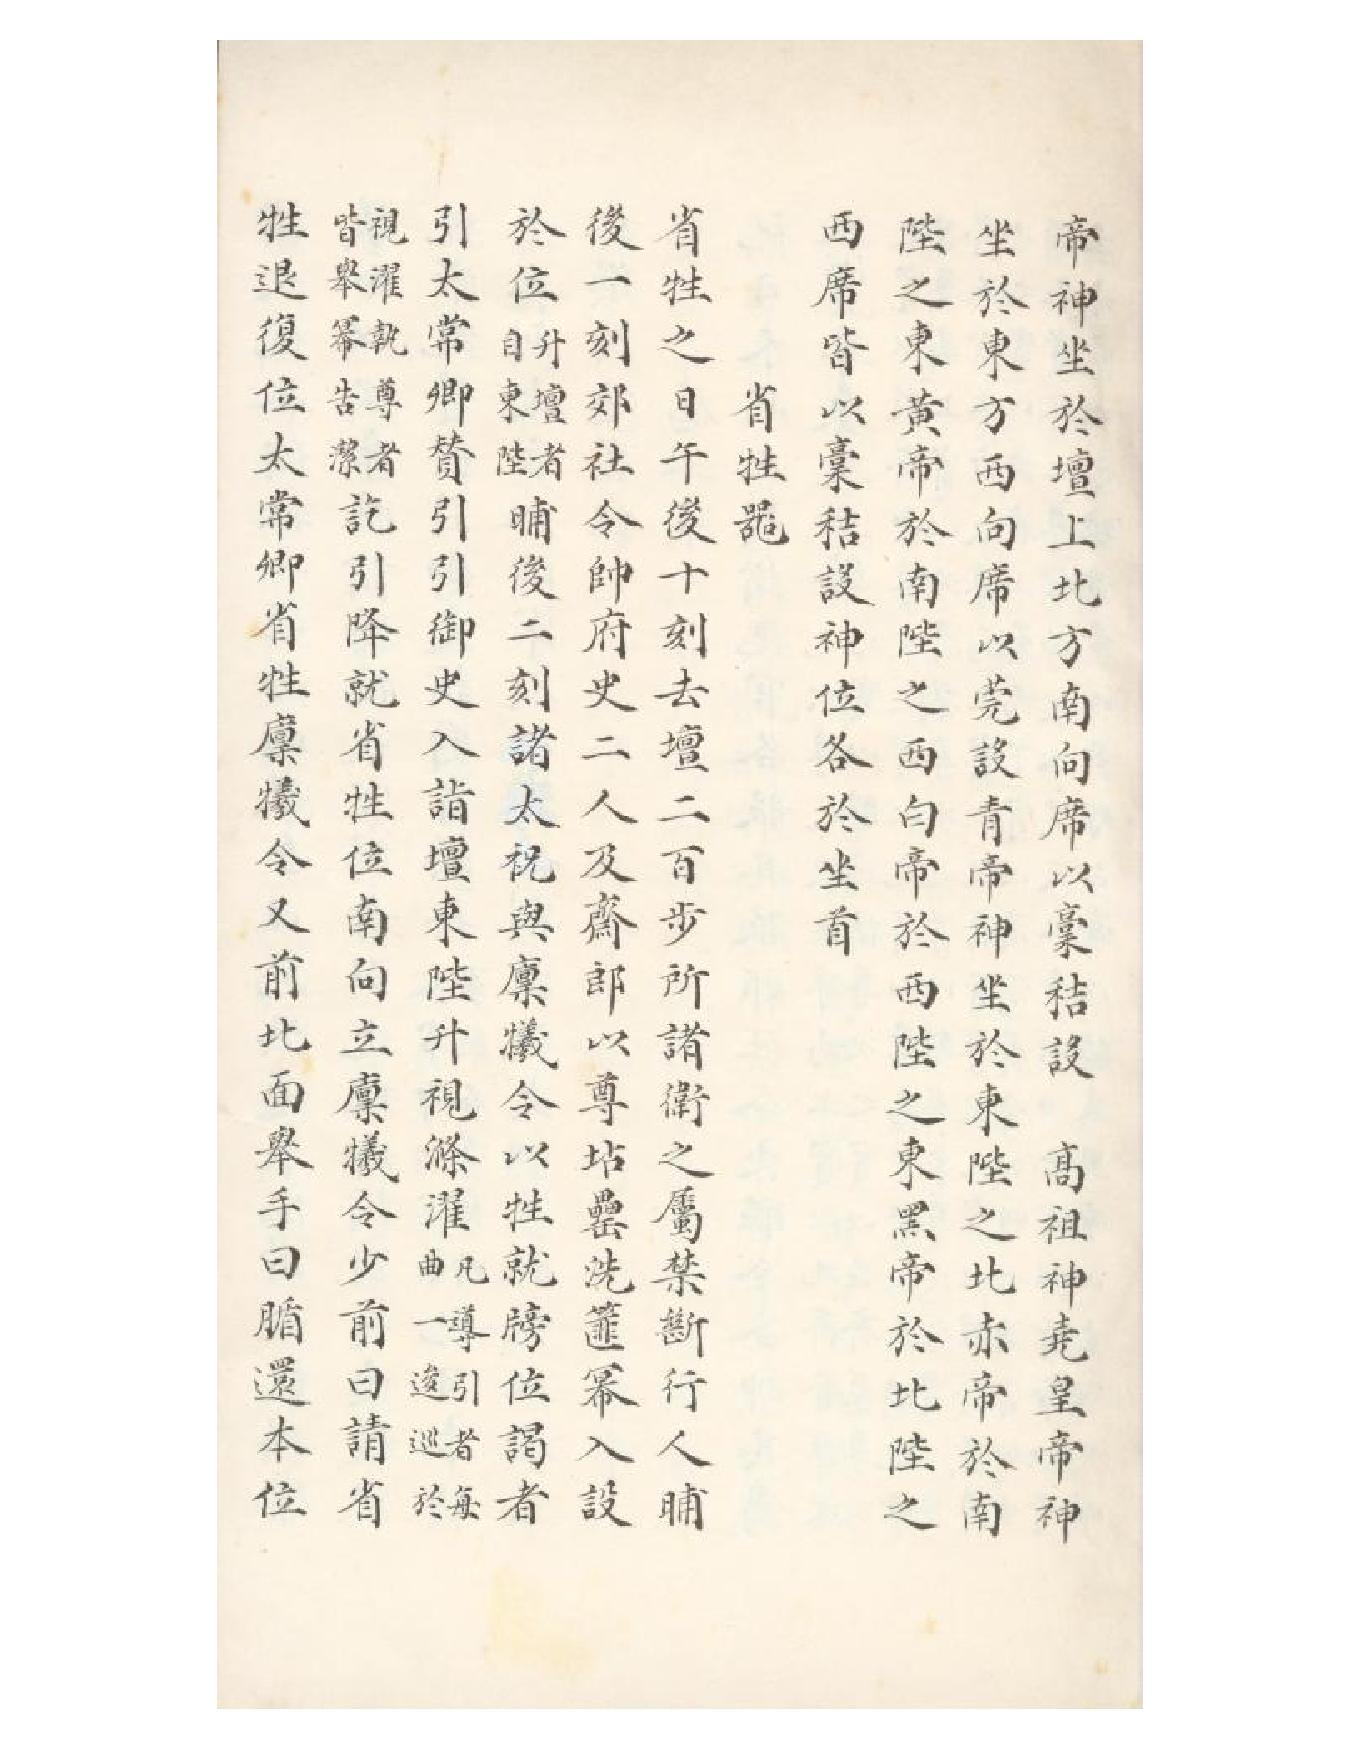 帝神坐於壇上北方南向席以藁秸設　高祖神堯皇帝神
坐於東方西向席以莞設青帝神坐於東陛之北赤帝於南
陛之東黃帝於南陛之西白帝於西陛之東黑帝於北陛之
西席皆以藁秸設神位各於坐首
省牲器
省牲之日午後十刻去壇二百步所諸衛之屬禁斷行人晡
後一刻郊社令帥府史二人及齋郎以尊坫罍洗篚冪入設
於位升壇者自東陛晡後二刻諸太祝與廩犧令以牲就牓位謁者
引太常卿贊引引御史入詣壇東陛升視滌濯凡導引者每曲一逡巡於
視濯執尊者皆舉冪告潔訖引降就省牲位南向立廩犧令少前曰請省
牲退復位太常卿省牲廩犧令又前北面舉手曰腯還本位